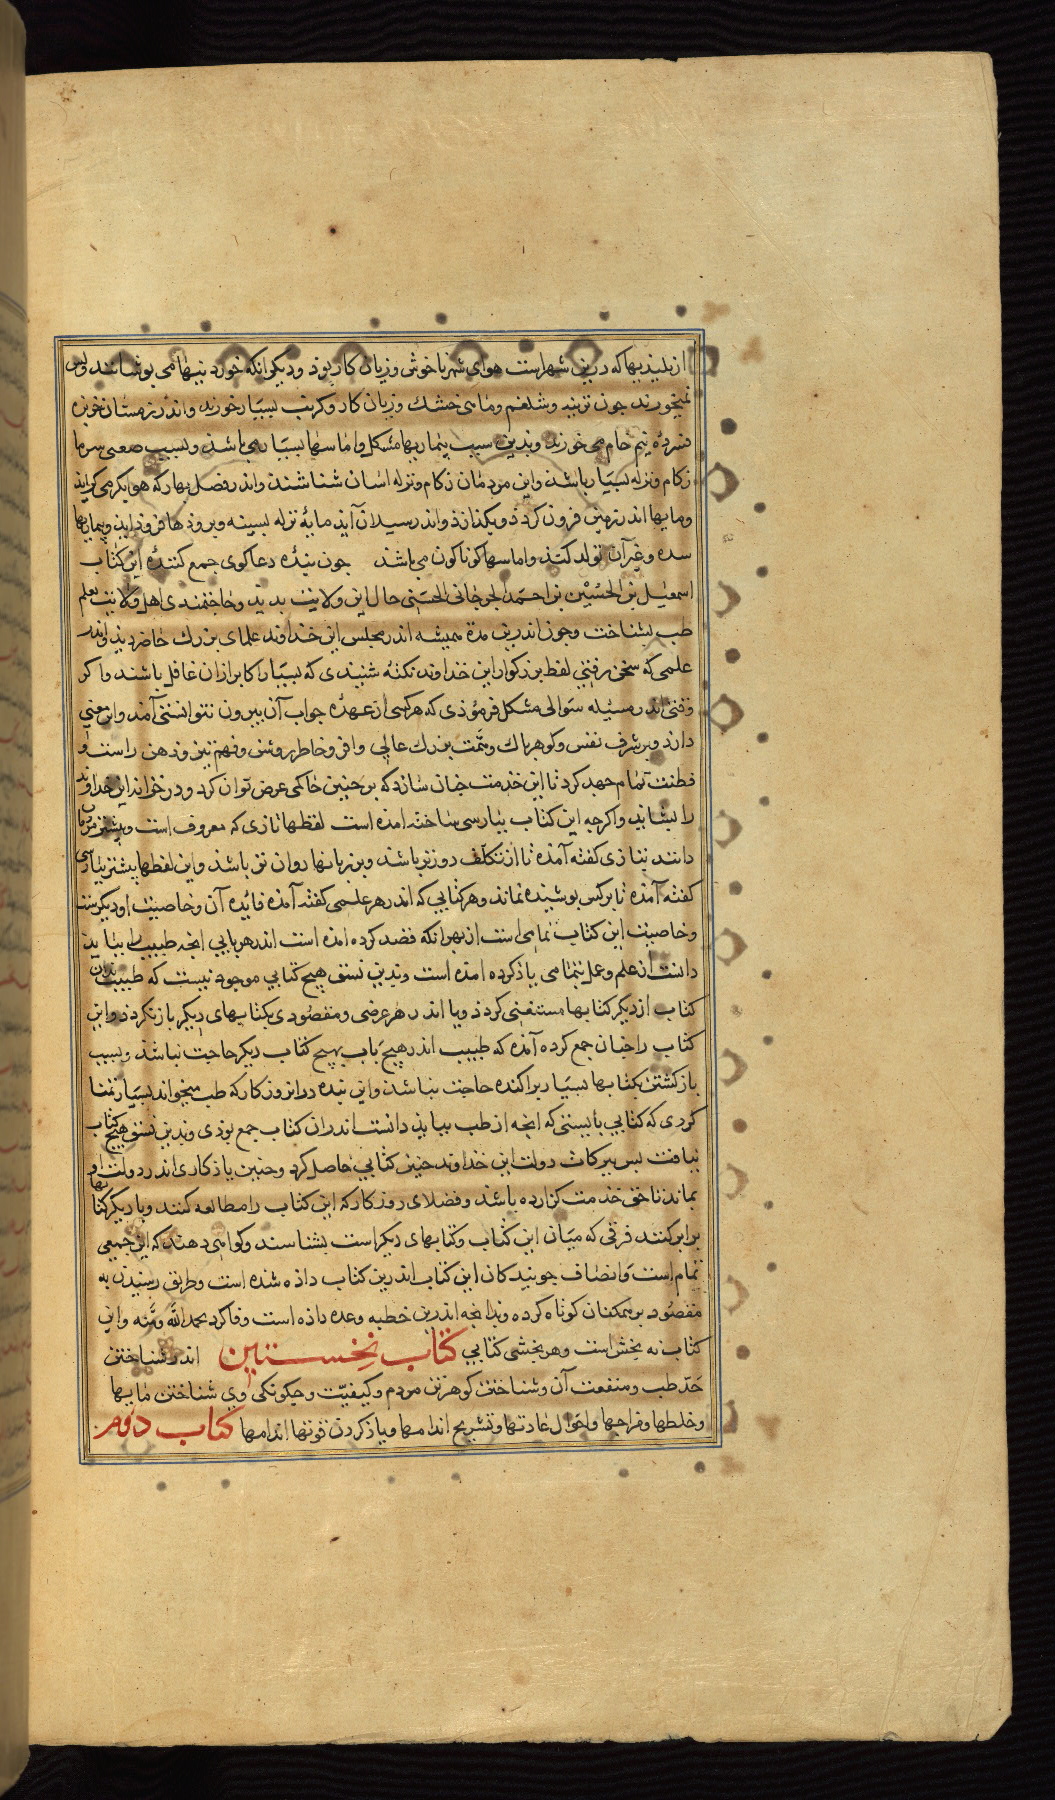 از پلیدیها که درین شهر است هوای شهر ناخوش و زیان کار بوذ و دیکر انکه خورد نیها می بوشانند و بس
نمیخورند جون ترینه و شلغم و ماهی خشک و زیان کار و کرنب بسیار خورند و اندر زمستان خربزه
فسرده نیم خام می خورند و بدین سبب بیماریها مشکل و اماسها بسیار می باشذ و بسبب صعبی سرما
زکام و نزله بسیار باشذ و این مردمان زکام و نزله اسان شناسند و اندر فصل بهار که هوا کرمی کیرد
و مایها اندر تنها فزون کردذ و بکذازذ و اندر سیلان آیذ مایۀ نزله بسینه و بروذها فروذ ایذ و بیماریها
سده و غیر آن تولد کند و اماسها کوناکون می باشذ جون بنده دعا کوی جمع کنندۀ این کتاب
اسمعیل بن الحسین بن احمد الجرجانی الحسنی حال این ولایت بدید و حاجتمندی اهل ولایت بعلم
طب بشناخت و جون اندرین مدة همیشه اندر مجلس این خداوند علمای بزرك حاضر دید و اندر
علمی که سخن رفتی لفظ بزرکوار این خذاوند نکته شنیدی که بسیار اکابر ازان غافل باشند و اکر
وقتی اندر مسئله سوالی مشکل فرموذی که هر کسی از عهدۀ جواب آن بیرون نتوانستی آمد و این معنی
دارد و بر شرف نفس و کوهر باك و همت بزرك عالی وافر و خاطر روشن و فهم تیز و ذهن راست و
فطنت تمام جهد کرد تا این خذمت جنان سازد که بر جنین حاکمی عرض توان کرد و در خواند این خداوند
را بشاید و اکرجه این کتاب ببارسی ساخته امده است لفظها تازی که معروف است و بیشتر مردمان
دانند بتازی کفته آمده تا از تکلف دورتر باشد و بر زبانها روان تر باشد و این لفظها بیشتر ببارسی
کفته آمده تا بر کس بوشیده نماند و هر کتابی که اندر هر علمی کفته آمده فائده آن و خاصیت او دیکرست
و خاصیت این کتاب تمامی است از بهر انکه قصد کرده امده است اندر هر بابی انجه طبیب را بباید
دانست از علم و عمل بتمامی یاذ کرده امده است و بدین نسق هیج کتابی موجود نیست که طبیب بدان
کتاب از دیکر کتابها مستغنی کردذ و یا اندر هر غرضی و مقصودی بکتابهای دیکر باز نکردذ و این
کتاب راجنان جمع کرده آمده که طبیب اندر هیج باب بهیج کتاب دیکر حاجت نباشذ و بسبب
باز کشتن بکتابها بسیار براکنده حاجت نباشذ و این بنده در ان روزکار که طب میخواند بسیار تمنا
کردی که کتابی بایستی که انجه از طب بباید دانست اندران کتاب جمع بوذی و بدین نسق هیج کتاب
نیافت بس ببرکات دولت این خذاوند جنین کتابی حاصل کرد و جنین یاذکاری اندر دولت او
بماند تا حق خذمت کزارده باشذ و فضلای روزکار که این کتاب را مطالعه کنند و با دیکر کتابها
برابر کنند فرقی که میان این کتاب و کتابهای دیکر است بشناسند و کواهی دهند که این جمعی
تمام است و انصاف جویند کان این کتاب اندرین کتاب داذه شده است و طریق رسیدن به
مقصود بر همکنان کوتاه کرده و بدانجه اندرین خطبه وعده داذه است وفا کرد بحمد الله و منه و این
کتاب نه بخش است و هر بخشی کتابی کتاب نخستین اندر شناختن
حد طب و منفعت آن و شناختن کوهر تن مردم و کیفیت و جکونکی وی شناختن مایها
و خلطها و مزاجها و احوال عادتها و تشریح اندامها و یاذ کردن قوتها اندامها کتاب دوم